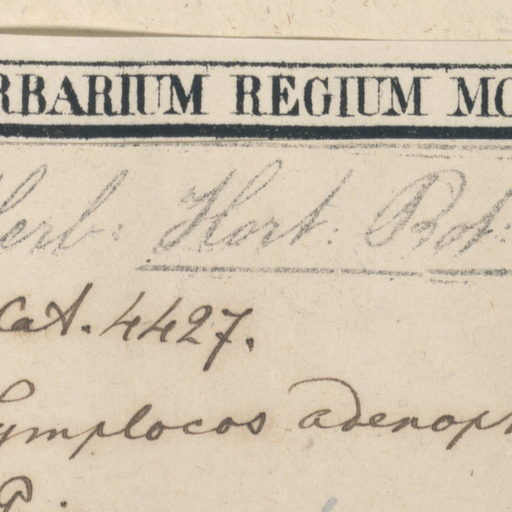 RBARIUM REGIUM MO
Herb: Hort: Bot:
Cat. 4427.
Symplocos adenoph